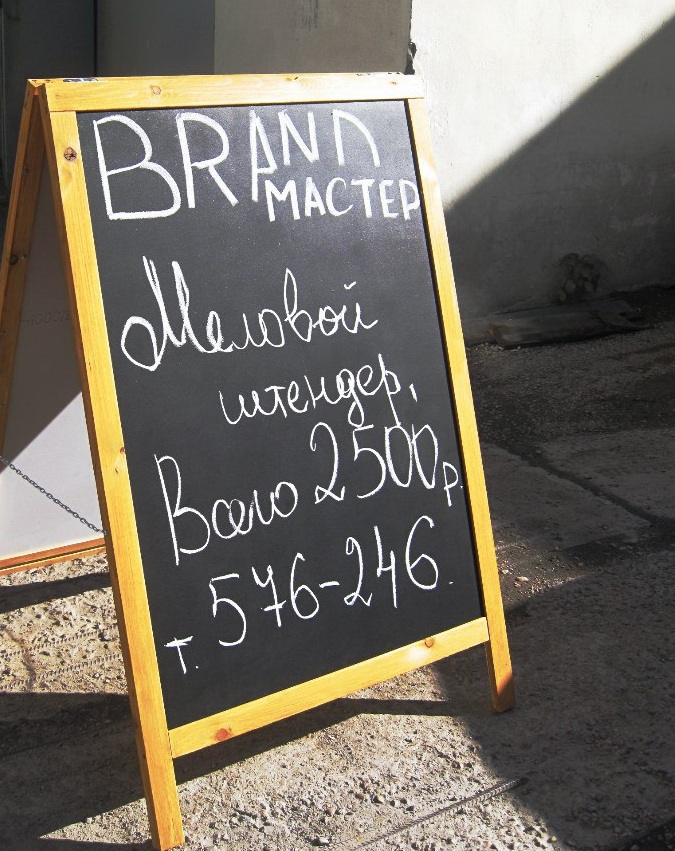 BRAND
МАСТЕР
Меловой
штендер,
Всего 2500р.
т. 576-246.